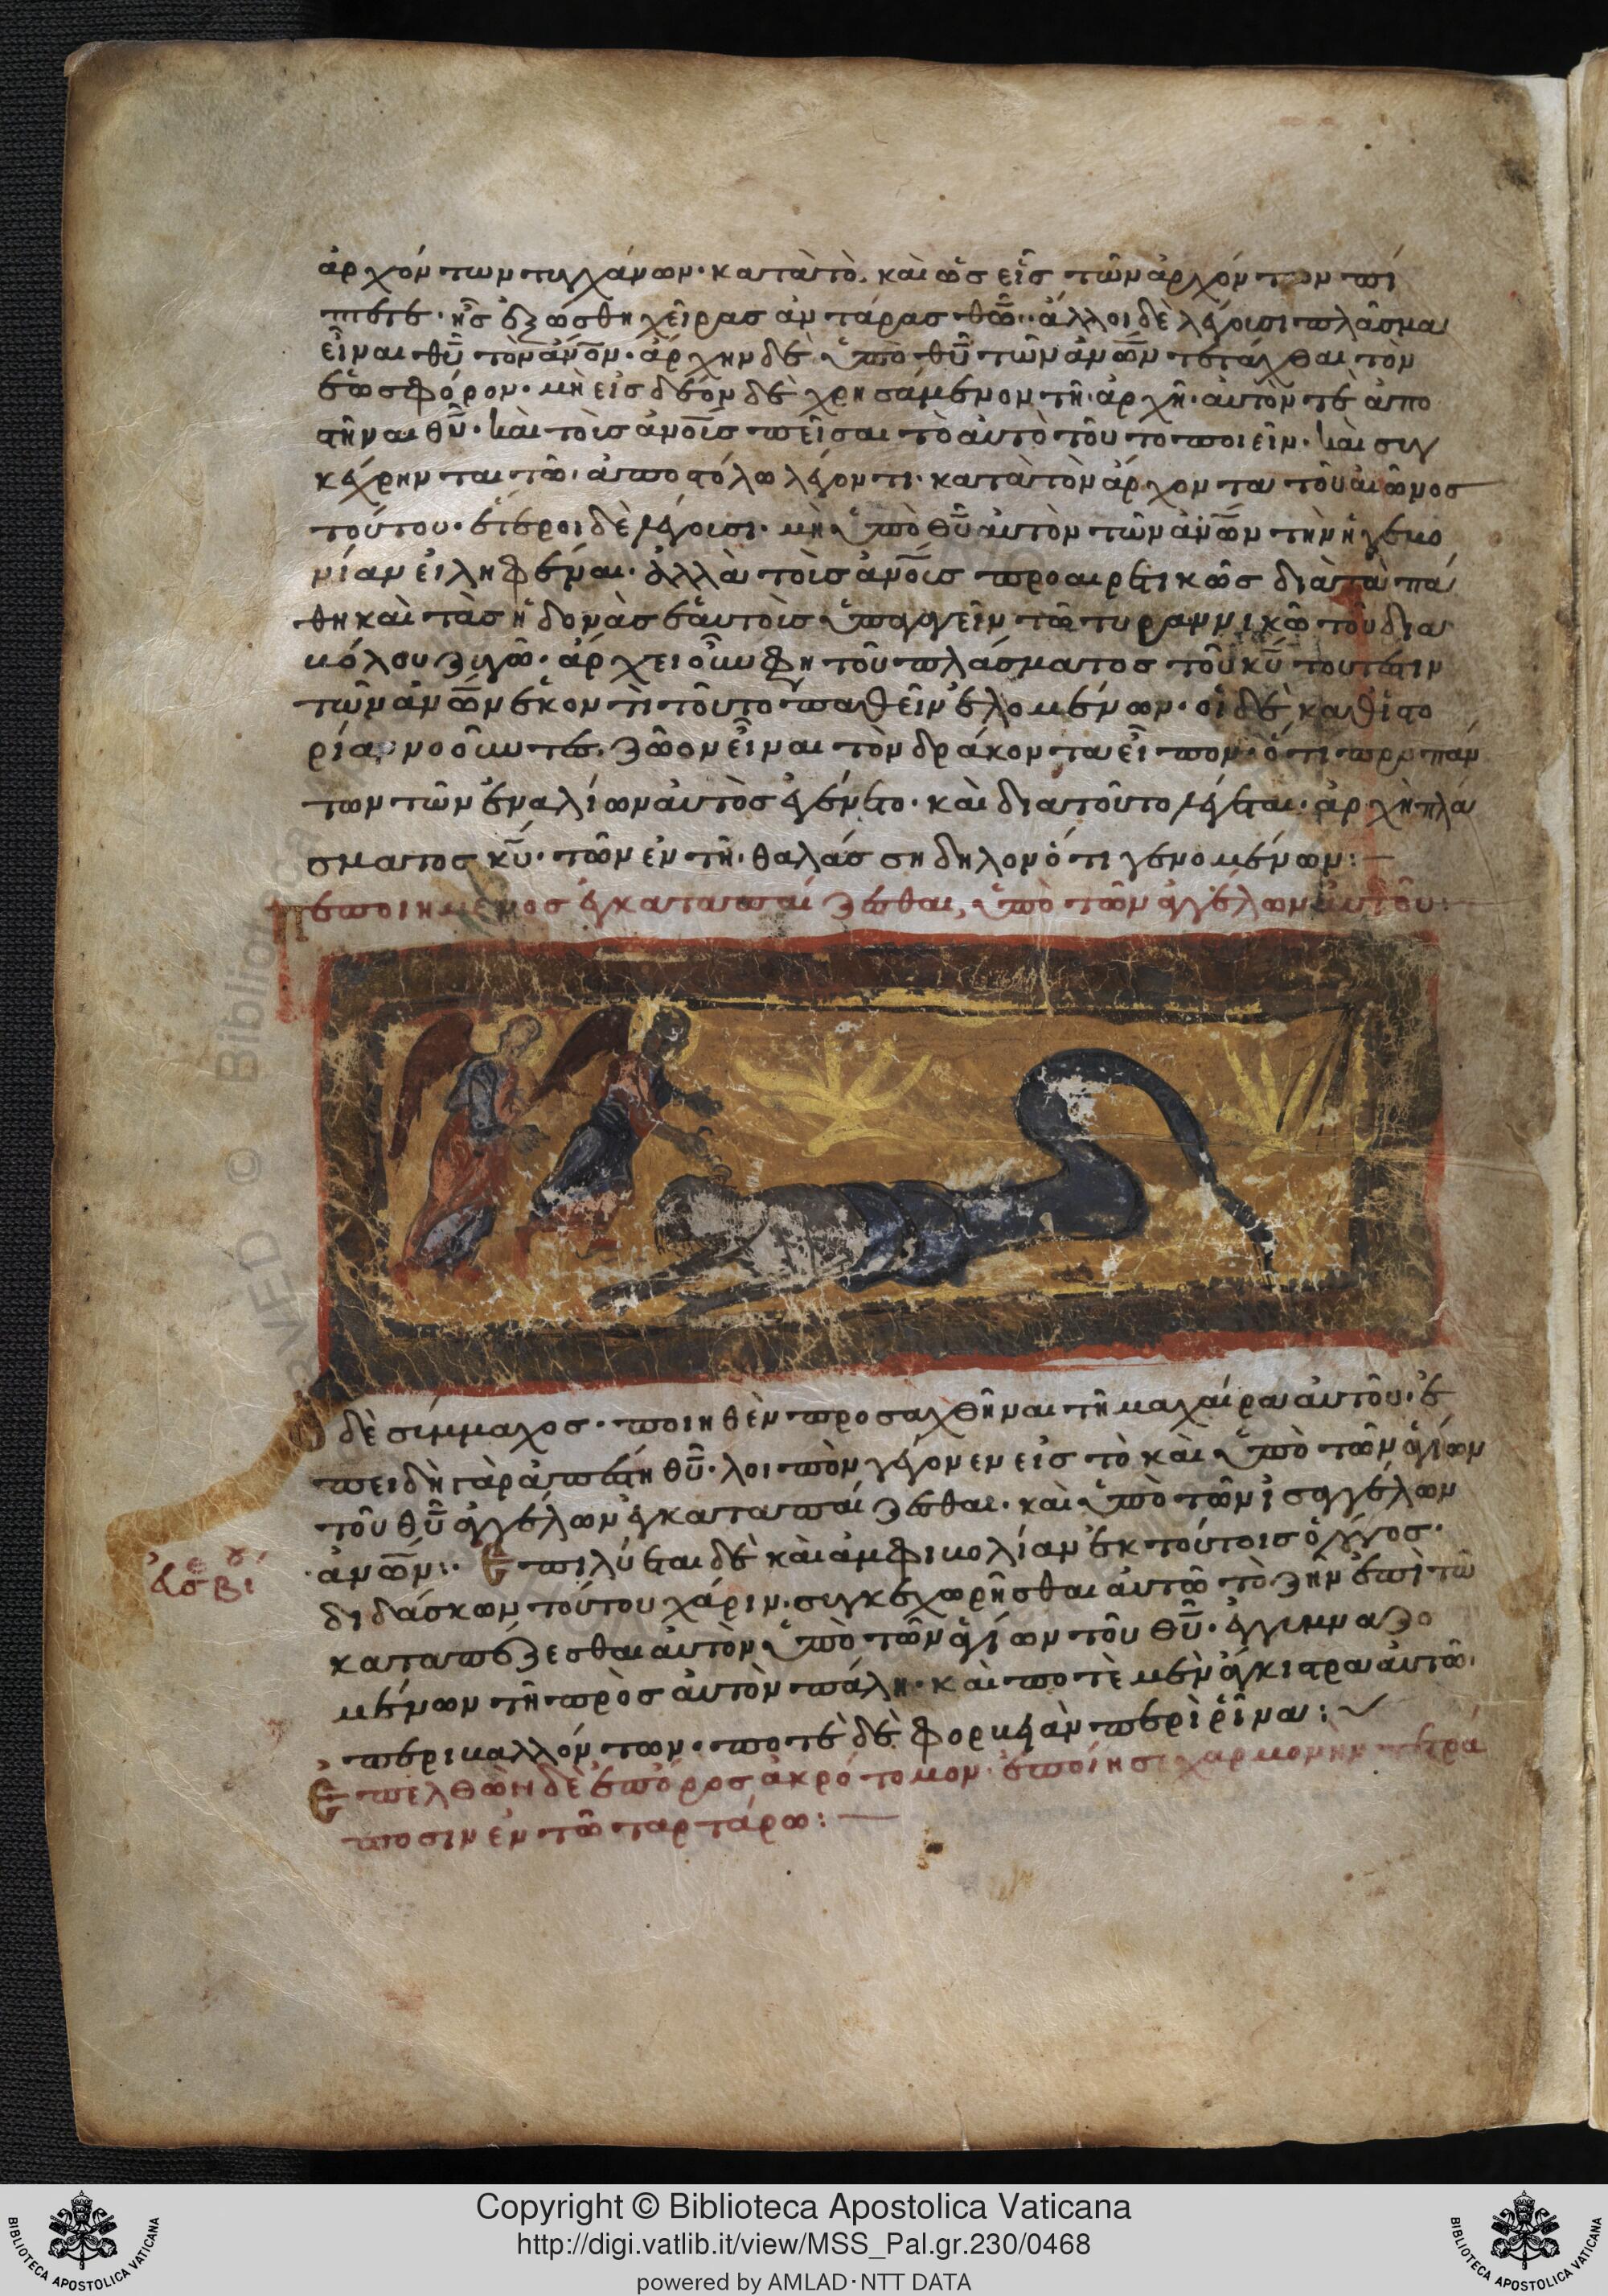 ἀρχόντων τυγχάνων· κατὰ τὸ· καὶ ὡς εἷς τῶν ἀρχόντων πί
πτετε· ἧς ἐξώσθη χεῖρας ἀντάρας θῶ· ἄλλοι δὲ λέγουσι πλάσμα
εἶναι θῦ τὸν ἀνὸν· ἀρχὴν δὲ ὑπὸ θῦ τῶν ἀνῶν τετάχθαι τὸν
ἑωσφόρον· μὴ εἰς δέον δὲ χρησάμενον τῆ ἀρχῆ· αὐτόν τε ἀπο
στῆναι θῦ· καὶ τοῖς ἀνοῖς πεῖσαι τὸ αὐτὸ τοῦτο ποιεῖν· καὶ συγ
κέχρηνται τῶ ἀποστόλω λέγοντι· κατὰ τὸν ἄρχοντα τοῦ αἰῶνος
τούτου· ἕτεροι δὲ λέγουσι· μὴ ὑπὸ θῦ αὐτὸν τῶν ἀνῶν τὴν ἡγεμο
νίαν εἰληφέναι· ἀλλὰ τοῖς ἀνοῖς προαιρετικῶς διὰ τὰ πά
θη καὶ τὰς ἡδονὰς ἑαυτοῖς ὑπαγαγεῖν τῶ τυραννικῶ τοῦ δια
βόλου ζυγῶ· ἄρχει οὖν φη τοῦ πλάσματος τοῦ κῦ τουτέστιν
τῶν ἀνῶν ἑκοντὶ τοῦτο παθεῖν ἑλομένων· οἱ δὲ καθ ἱστο
ρίαν νοοῦντες ζῶον εἶναι τὸν δράκοντα εἶπον· ὅτι πρὸ πάν
των τῶν ἐναλίων αὐτὸς ἐγένετο· καὶ διατοῦτο λέγεται· ἀρχὴ πλά
σματος κῦ· τῶν ἐν τῆ θαλάσση δηλονότι γενομένων:
πεποιημένος ἐγκαταπαίζεσθαι, ὑπὸ τῶν ἀγγέλων αὐτοῦ:
Ὁ δὲ σύμμαχος· ποιηθὲν προσαχθῆναι τῆ μαχαίρα αὐτοῦ· ἐ
πειδὴ γὰρ ἀπέστη θῦ· λοιπὸν γέγονεν εἰς τὸ καὶ ὑπὸ τῶν ἁγίων
τοῦ θῦ ἀγγέλων ἐγκαταπαίζεσθαι· καὶ ὑπὸ τῶν ἰσαγγέλων
ἀνῶν: Ἐπιλύεται δὲ καὶ ἀμφιβολίαν ἐκ τούτοις ὁ λόγος·
διδάσκων τούτου χάριν συγκεχωρῆσθαι αὐτῶ τὸ ζῆν ἐπὶ τῶ
καταπέζεσθαι αὐτὸν ὑπὸ τῶν ἁγίων τοῦ θῦ· ἐγγυμναζο
μένων τῆ πρὸς αὐτὸν πάλη· καὶ ποτὲ μὲν ἄγκιστρα αὐτῶ
περιβαλλόντων· ποτὲ δὲ φορβεὰν περὶ ῥῖνα:
Ἐπελθὼν δὲ ἐπ ὄρος ἀκρότομον· ἐποίησε χαρμονὴν τετρά
ποσιν ἐν τῶ ταρτάρω:
Copyright © Biblioteca Apostolica Vaticana
http://digi.vatlib.it/view/MSS_Pal.gr.230/0468
powered by AMLAD·NTT DATA
BIBLIOTECA APOSTOLICA VATICANA
BIBLIOTECA APOSTOLICA VATICANA